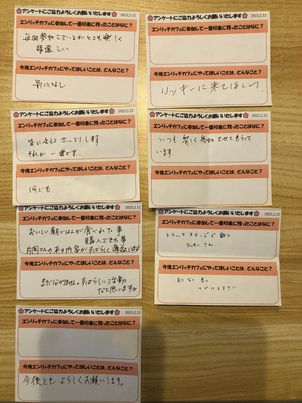 アンケートにご協力よろしくお願いいたします
2023.2.12
今回エンリッチカフェに参加して一番印象に残ったことはなに？
毎回参加しているがとても楽しく
嬉しい
今後エンリッチカフェにやってほしいことは、どんなこと？
特になし
アンケートにご協力よろしくお願いいたします
2023.2.12
今回エンリッチカフェに参加して一番印象に残ったことはなに？
今後エンリッチカフェにやってほしいことは、どんなこと？
リッキーに来てほしい
アンケートにご協力よろしくお願いいたします
2023.2.12
今回エンリッチカフェに参加して一番印象に残ったことはなに？
皆に会えて ホッコリします
それが 一番です
今後エンリッチカフェにやってほしいことは、どんなこと？
何でも
アンケートにご協力よろしくお願いいたします
2023.2.12
今回エンリッチカフェに参加して一番印象に残ったことはなに？
いつも 楽しく 参加 させて もらって
います
今後エンリッチカフェにやってほしいことは、どんなこと？
アンケートにご協力よろしくお願いいたします
2023.2.12
今回エンリッチカフェに参加して一番印象に残ったことはなに？
おいしい朝ごはんが食べれた事
購入できた事
今後エンリッチカフェにやってほしいことは、どんなこと？
アンケートにご協力よろしくお願いいたします
2023.2.12
今回エンリッチカフェに参加して一番印象に残ったことはなに？
今後エンリッチカフェにやってほしいことは、どんなこと？
アンケートにご協力よろしくお願いいたします
2023.2.12
今回エンリッチカフェに参加して一番印象に残ったことはなに？
今後エンリッチカフェにやってほしいことは、どんなこと？
今後とも よろしくお願いします。